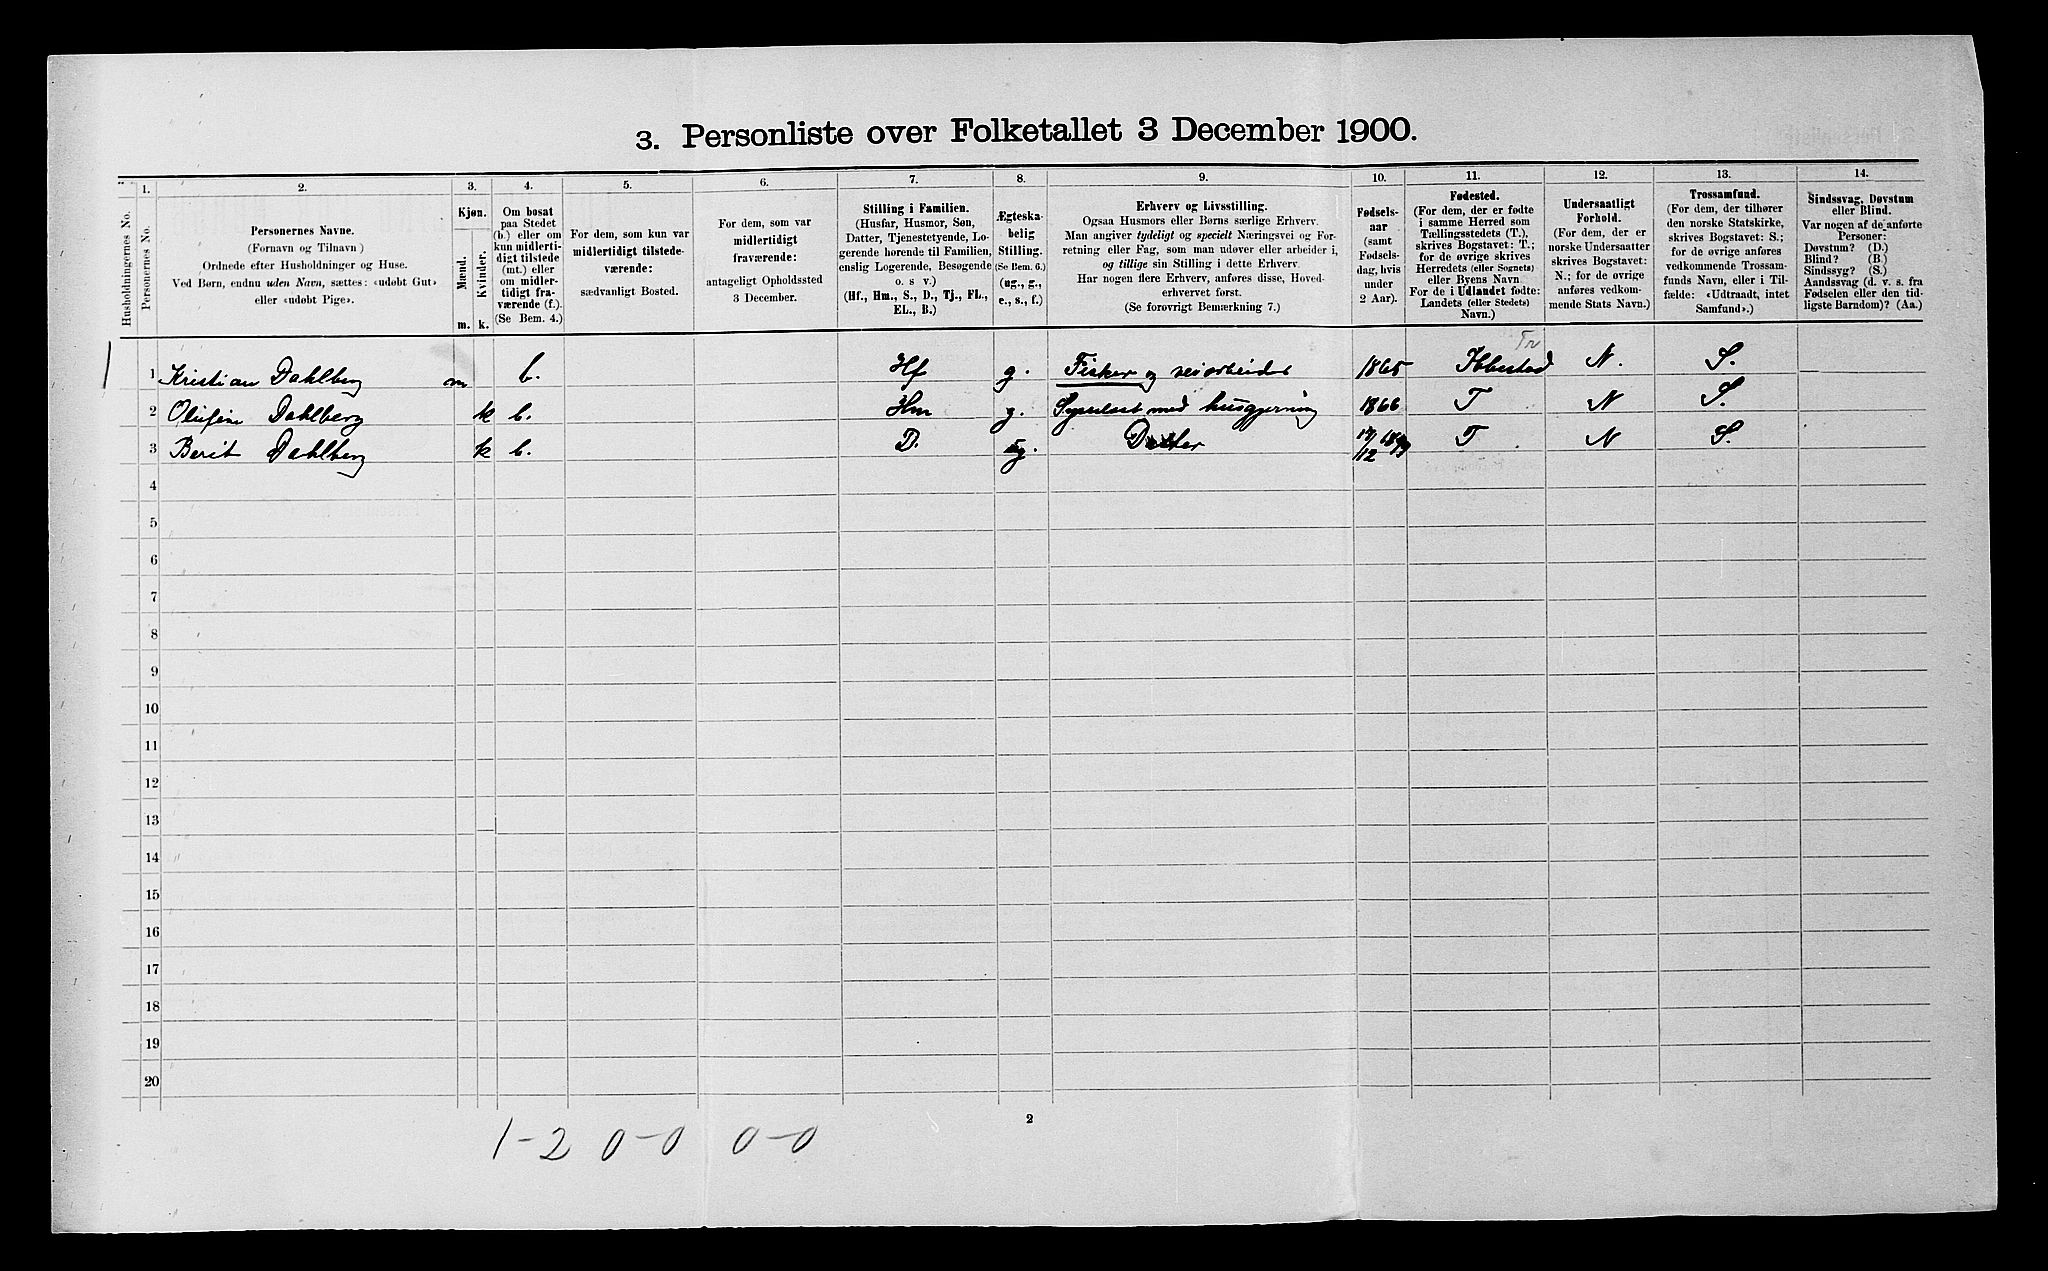 3. Personliste over Folketallet 3 December 1900.
1. 2. 3. 4. 5. 6. 7. 8. 9. 10. 11. 12. 13. 14.
Husholdningernes No.
Personernes No.
Personernes Navne.
(Fornavn og Tilnavn)
Ordnede efter Husholdninger og Huse.
Ved Børn, endnu uden Navn, sættes: «udøbt Gut»
eller «udøbt Pige».
Kjøn.
Mænd.
Kvinder.
m. k.
Om bosat
paa Stedet
(b.) eller om
kun midlerti-
digt tilstede
(mt.) eller
om midler-
tidigt fra-
værende (f.).
(Se Bem. 4.)
For dem, som kun var
midlertidigt tilstede-
værende:
sædvanligt Bosted.
For dem, som var
midlertidigt
fraværende:
antageligt Opholdssted
3 December.
Stilling i Familien.
(Husfar, Husmor, Søn,
Datter, Tjenestetyende, Lo-
gerende hørende til Familien,
enslig Logerende, Besøgende
o. s v.)
(Hf., Hm., S., D., Tj., FL.,
EL., B.)
Ægteska-
belig
Stilling.
(Se Bem. 6.)
(ug., g.,
e., s., f.)
Erhverv og Livsstilling.
Ogsaa Husmors eller Børns særlige Erhverv.
Man angiver tydeligt og specielt Næringsvei og For-
retning eller Fag, som man udøver eller arbeider i,
og tillige sin Stilling i dette Erhverv.
Har nogen flere Erhverv, anføres disse, Hoved-
erhvervet først.
(Se forøvrigt Bemærkning 7.)
Fødsels-
aar
(samt
Fødsels-
dag, hvis
under
2 Aar).
Fødested.
(For dem, der er fødte
i samme Herred som
Tællingsstedets (T.),
skrives Bogstavet: T.;
for de øvrige skrives
Herredets (eller Sognets)
eller Byens Navn
For de i Udlandet fødte:
Landets (eller Stedets)
Navn.)
Undersaatligt
Forhold.
(For dem, der er
norske Undersaatter
skrives Bogstavet:
N.; for de øvrige
anføres vedkom-
mende Stats Navn.)
Trossamfund.
(For dem, der tilhører
den norske Statskirke,
skrives Bogstavet: S.;
for de øvrige anføres
vedkommende Trossam-
funds Navn, eller i Til-
fælde: «Udtraadt, intet
Samfund».)
Sindssvag, Døvstum
eller Blind.
Var nogen af de anførte
Personer:
Døvstum? (D.)
Blind? (B.)
Sindssyg? (S.)
Aandssvag (d. v. s. fra
Fødselen eller den tid-
ligste Barndom)? (Aa.)
Tr
1 1 Kristian Dahlberg m b. Hf g. Fisker og veiarbeider 1865 Ibbestad N. S.
2 Olufine Dahlberg k b. Hm g. Sysselsat med husgjerning 1866 T N S.
3 Berit Dahlberg k b. D. ug. Datter 17/12 1899 T N S.
4
5
6
7
8
9
10
11
12
13
14
15
16
17
18
19
20
2
1-2 0-0 0-0